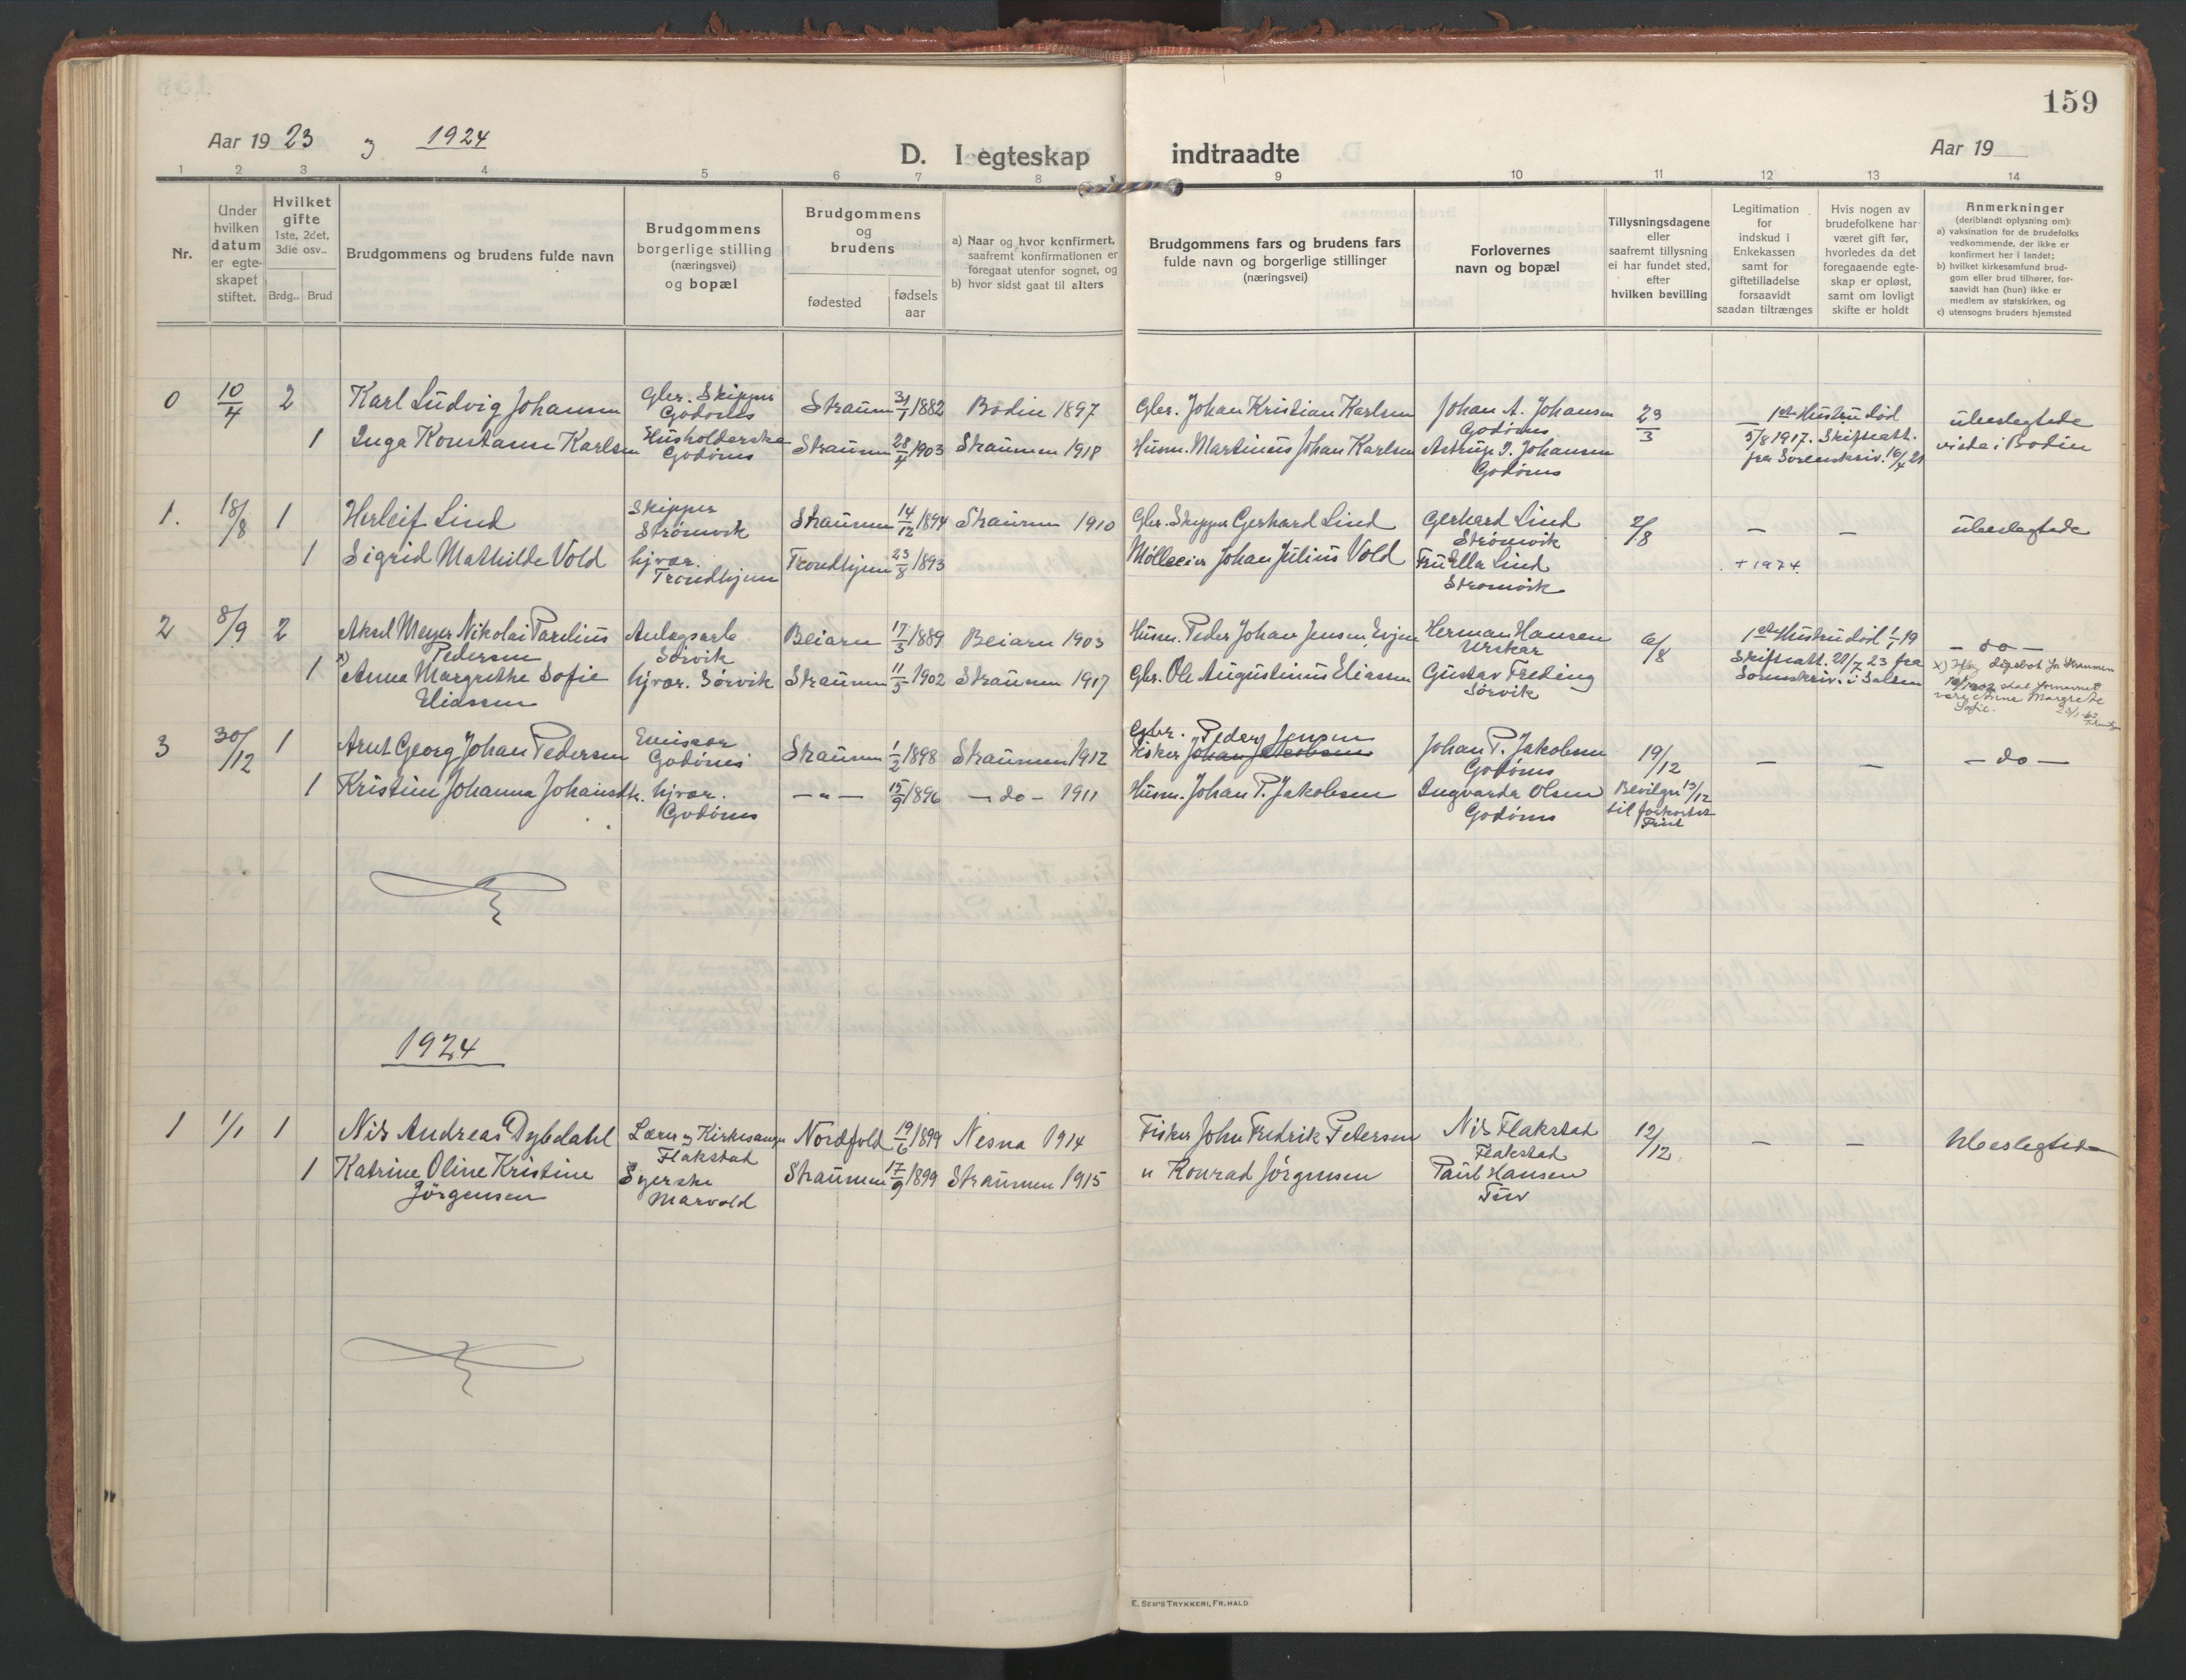 159
Aar 1923 og 1924
D. I egteskap indtraadte
Aar 19
1 2 3 4 5 6 7 8 9 10 11 12 13 14
Nr.
Under hvilken datum er egteskapet stiftet.
Hvilket gifte 1ste, 2det, 3die osv..
Brdg.. Brud
Brudgommens og brudens fulde navn
Brudgommens borgerlige stilling (næringsvei) og bopæl
Brudgommens og brudens
fødested
fødsels aar
a) Naar og hvor konfirmert, saafremt konfirmationen er foregaat utenfor sognet, og
b) hvor sidst gaat til alters
Brudgommens fars og brudens fars fulde navn og borgerlige stillinger (næringsvei)
Forlovernes navn og bopæl
Tillysningsdagene eller saafremt tillysning ei har fundet sted, efter hvilken bevilling
Legitimation for indskud i Enkekassen samt for giftetilladelse forsaavidt saadan tiltrænges
Hvis nogen av brudefolkene har været gift før, hvorledes da det foregaaende egteskap er opløst, samt om lovligt skifte er holdt
Anmerkninger (deriblandt oplysning om):
a) vaksination for de brudefolks vedkommende, der ikke er konfirmert her i landet;
b) hvilket kirkesamfund brudgom eller brud tilhører, forsaavidt han (hun) ikke er medlem av statskirken, og
c) utensogns bruders hjemsted
0 10/4 2 Karl Ludvig Johansen Gbr. Skipper Godønes Straumen 31/1 1882 Bodin 1897 Gbr. Johan Kristian Karlsen Johan A. Johansen Godønes 23/3 1ste Hustru død 5/8 1917. Skifteatt. fra Sorenskriv. 16/4 21 ubeslegtede viede i Bodin
1 Inga Konstanse Karlsen Husholderske Godønes Straumen 28/4 1903 Straumen 1918 Husm. Martinus Johan Karlsen Astrup I. Johansen Godønes
1. 18/8 1 Herleif Lind Skipper Strømvik Straumen 14/12 1894 Straumen 1910 Gbr. Skipper Gerhard Lind Gerhard Lind Strømvik 2/8 — — ubeslegtede
1 Sigrid Mathilde Vold hjvær. Trondhjem Trondhjem 23/8 1893 Mølleeier Johan Julius Vold Fru Ella Lind Strømvik + 1974.
2 8/9 2 Aksel Meyer Nikolai Parelius Pedersen Anlægsarb. Sørvik Beiarn 17/3 1889 Beiarn 1903 Husm. Peder Johan Jensen Evjen Herman Hansen 6/8 1ste Hustru død 1/1 19 Skifteatt. 21/7 23 fra Sorenskriv. i Salten — do —
x) 1 Anna Margrethe Sofie Eliassen hjvær. Sørvik Straumen 11/5 1902 Straumen 1917 Gbr. Ole Augustinus Eliassen Gustav Freding Sørvik x) dåpsbok for Straumen 1902 skal fornavnet være Anne Margrete Sofie.
3 30/12 1 Arnt Georg Johan Pedersen Emissær Godønes Straumen 1/2 1898 Straumen 1912 Gbr. Peder Jensen Fisker Johan Jakobsen Johan P. Jakobsen Godønes 19/12 — — — do —
1 Kristine Johanna Johansdtr. hjvær. Godønes — „ — 15/9 1896 — do — 1911 Husm. Johan P. Jakobsen Ingvarda Olsen Godønes Bevilgn 13/12 til forkortet Frist
1924
1 1/1 1 Nils Andreas Dybdahl Lærer og Kirkesanger Flakstad Nordfold 19/6 1899 Nesna 1914 Fisker John Fredrik Petersen Nils Flakstad Flakstad 12/12. — — Ubeslegtede
1 Katrine Oline Kristine Jörgensen Syerske Marvold Straumen 17/9 1899 Straumen 1915 „ Konrad Jörgensen Paul Hansen Tuv
E. SEM'S TRYKKERI, FR.HALD